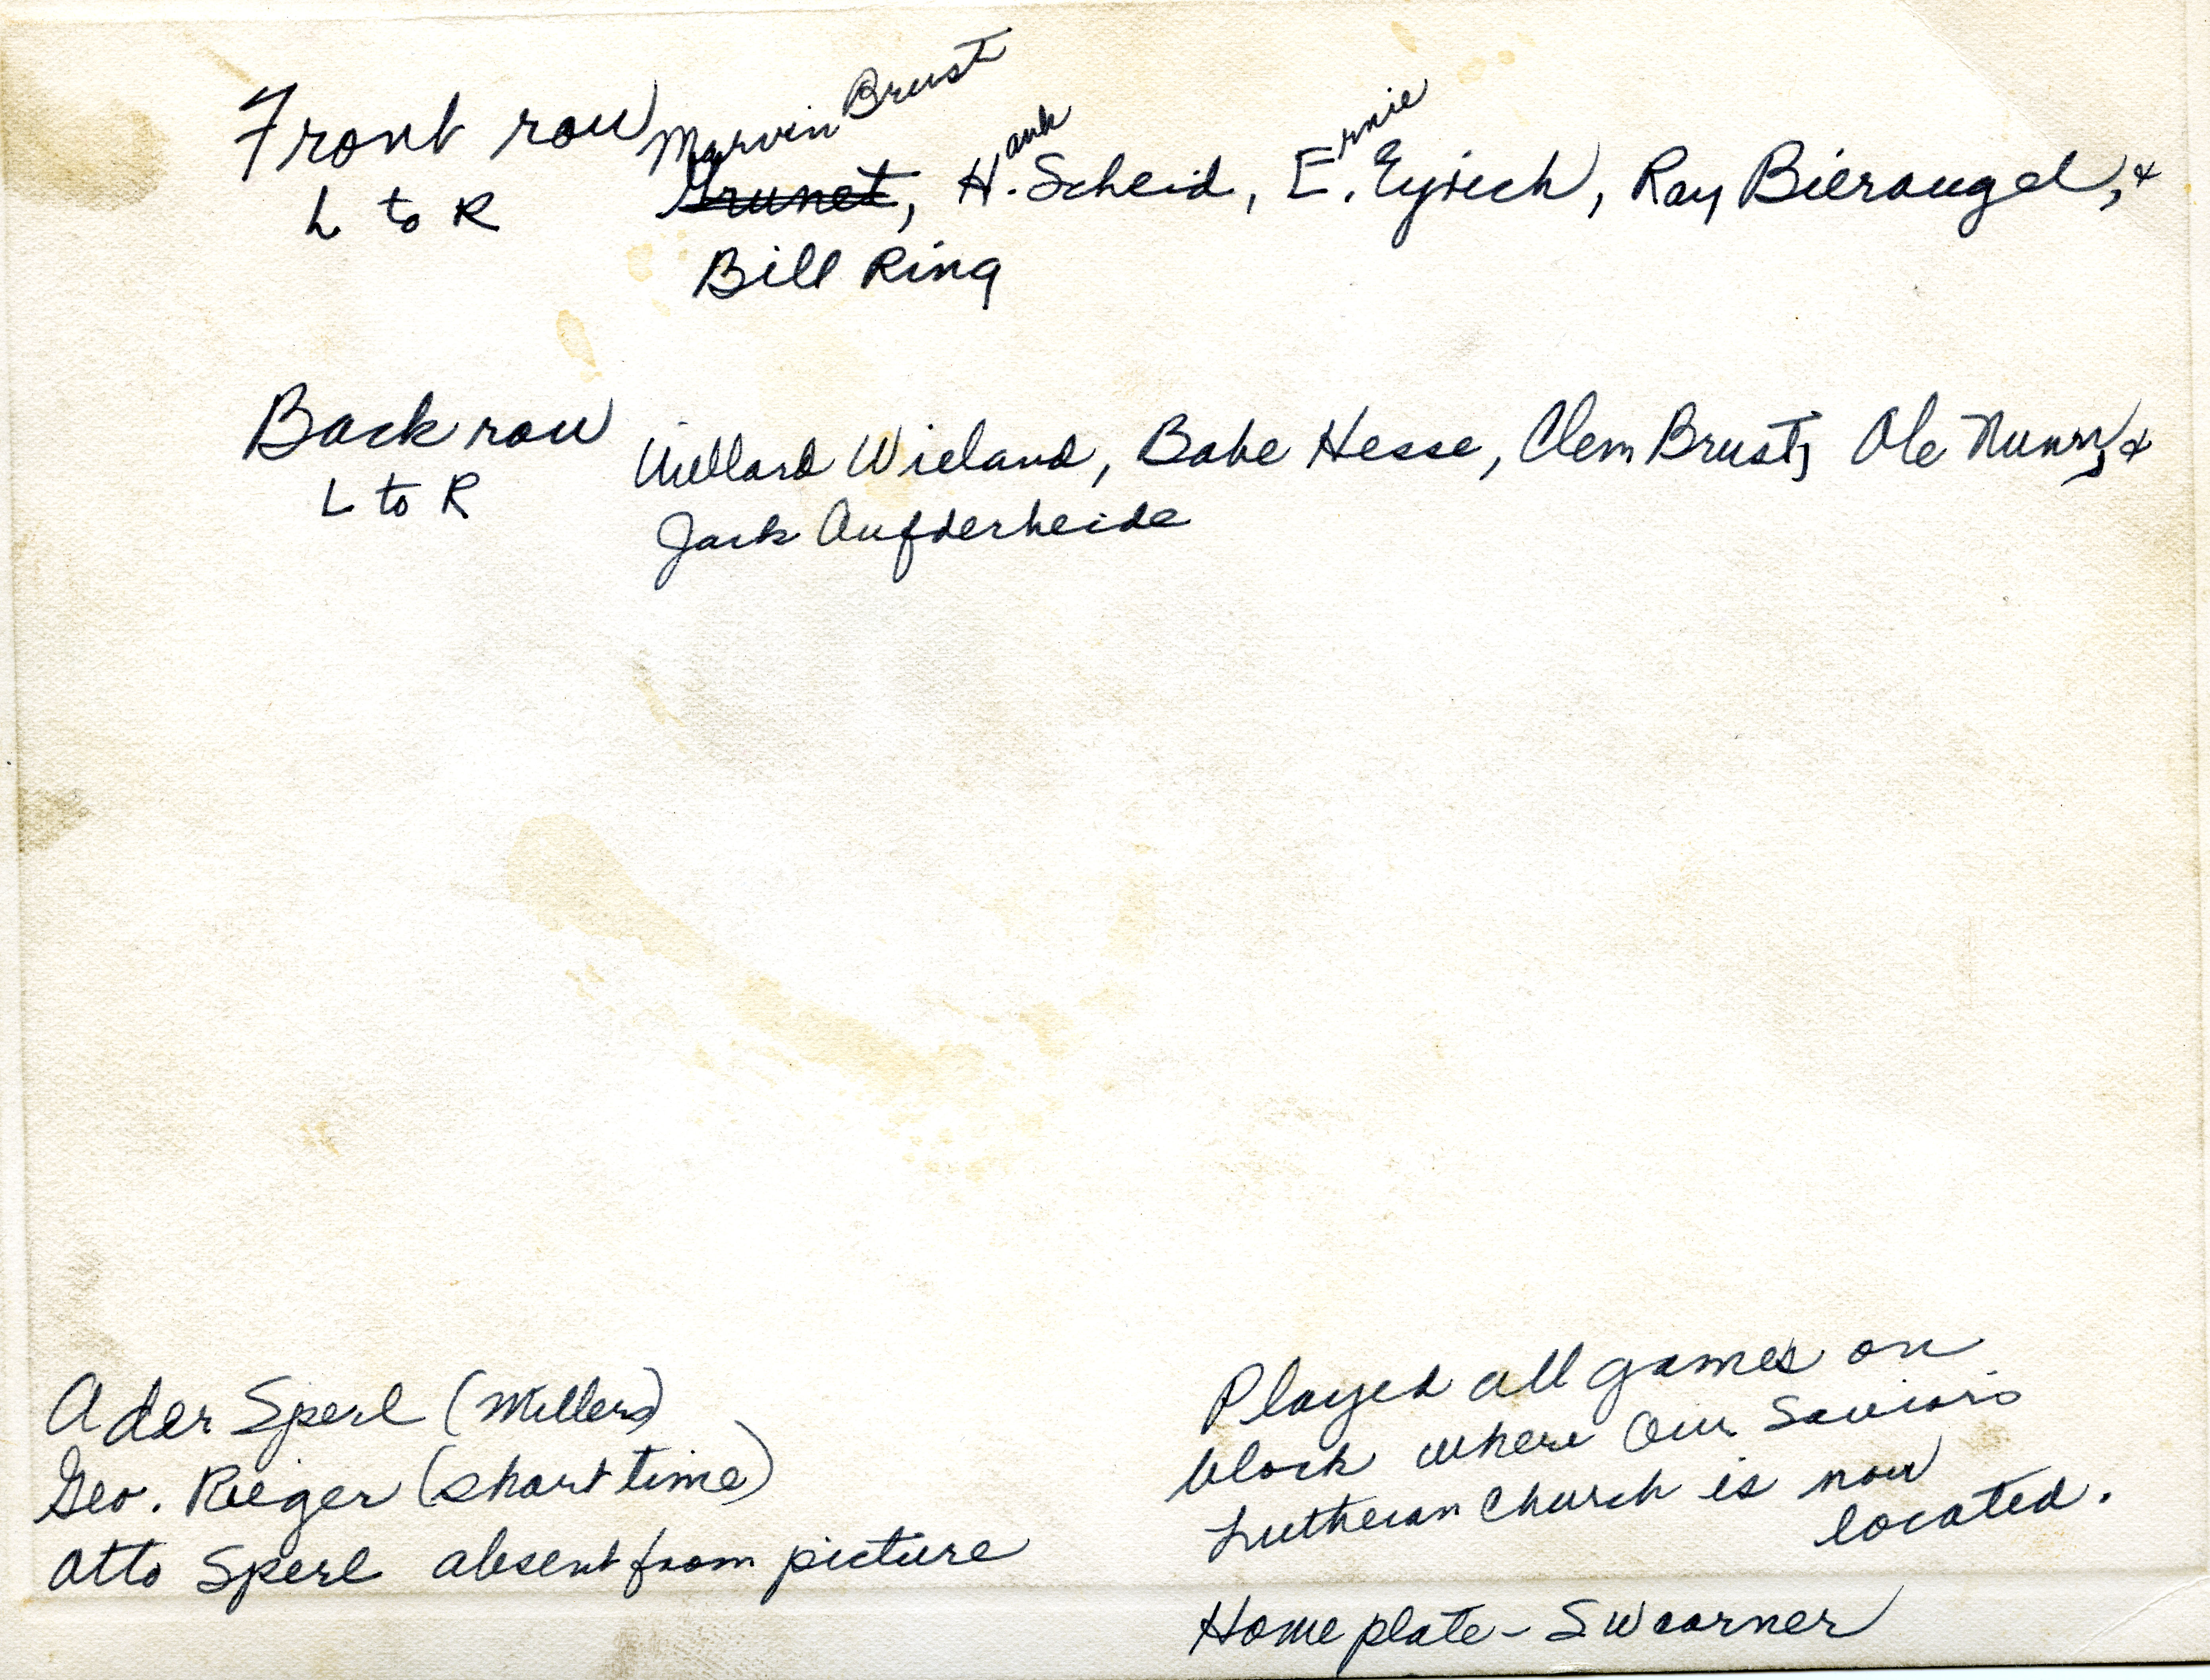 Front row Marvin Brust
L to R Grunet, Hank. Scheid, Ernie. Eyrich, Ray Bieraugel, &
Bill Ring
Back row Willard Wieland, Babe Hesse, Clem Brust, Ole Nunn, &
L to R Jack Aufderheide
Ader Sperl (Millers)
Geo. Rieger (short time)
Otto Sperl absent from picture
Played all games on
block where Our Savior's
Lutheran Church is now
located.
Home plate - SW corner